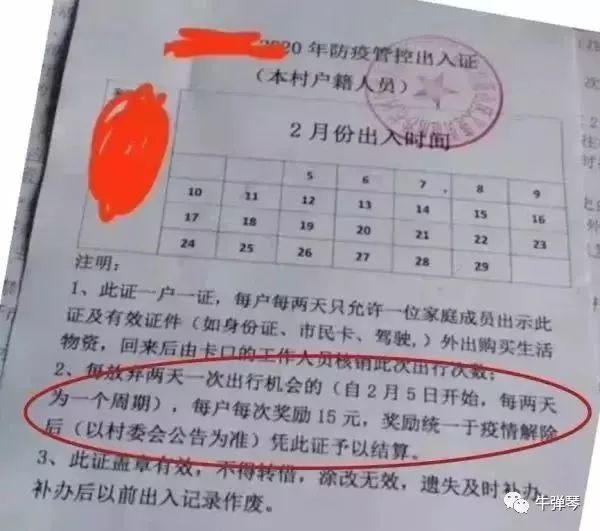 2020年防疫管控出入证
（本村户籍人员）
2月份出入时间
5 6 7 8 9
10 11 12 13 14 15 16
17 18 19 20 21 22 23
24 25 26 27 28 29
注明：
1、此证一户一证，每户每两天只允许一位家庭成员出示此
证及有效证件（如身份证、市民卡、驾驶,）外出购买生活
物资，回来后由卡口的工作人员核销此次出行次数；
2、每放弃两天一次出行机会的（自2月5日开始，每两天
为一个周期），每户每次奖励15元，奖励统一于疫情解除
后（以村委会公告为准）凭此证予以结算。
3、此证盖章有效，不得转借，涂改无效，遗失及时补办，
补办后以前出入记录作废。
牛弹琴